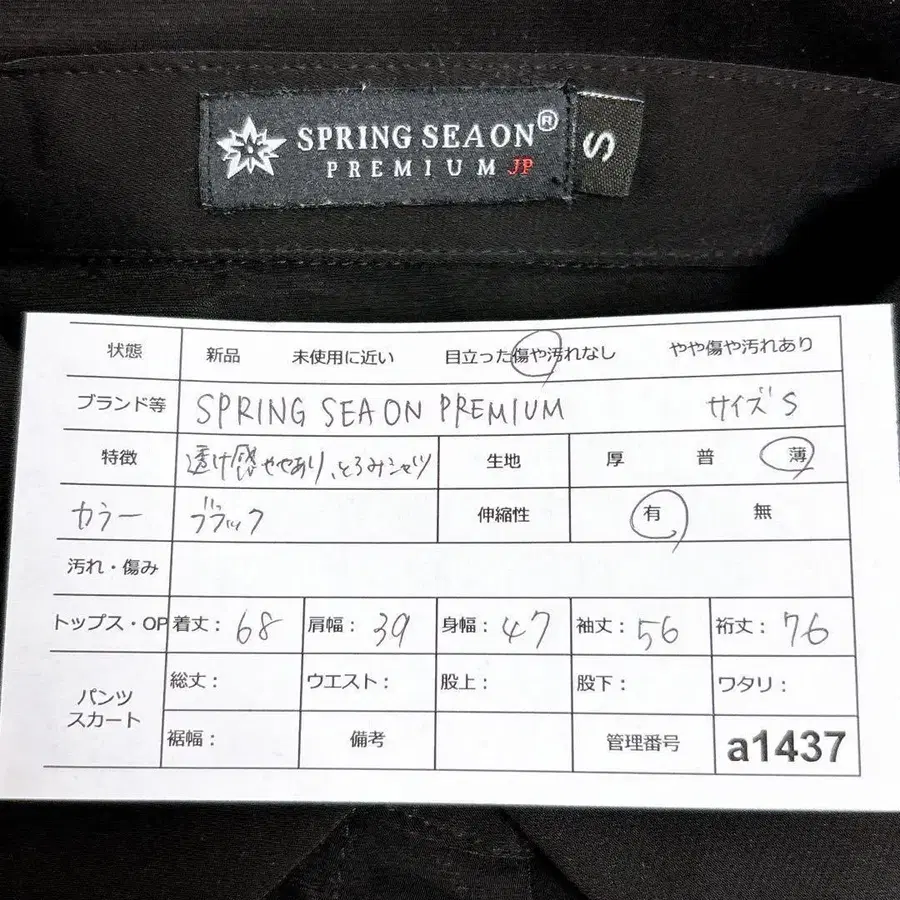 SPRING SEAON®
PREMIUM JP
S
状態 新品 未使用に近い 目立った傷や汚れなし やや傷や汚れあり
ブランド等 SPRING SEAON PREMIUM サイズS
特徴 透け感ややあり、とろみシャツ 生地 厚 普 薄
カラー ブラック 伸縮性 有 無
汚れ・傷み
トップス・OP 着丈：68 肩幅：39 身幅：47 袖丈：56 裄丈：76
パンツ スカート 総丈： ウエスト： 股上： 股下： ワタリ：
裾幅： 備考 管理番号 a1437